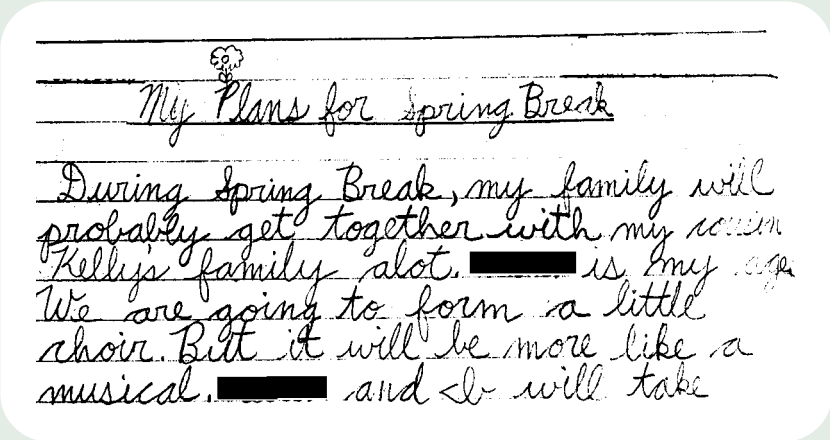 My Plans for Spring Break
During Spring Break, my family will
probably get together with my cousin
Kelly's family alot. is my age.
We are going to form a little
choir. But it will be more like a
musical. and I will take